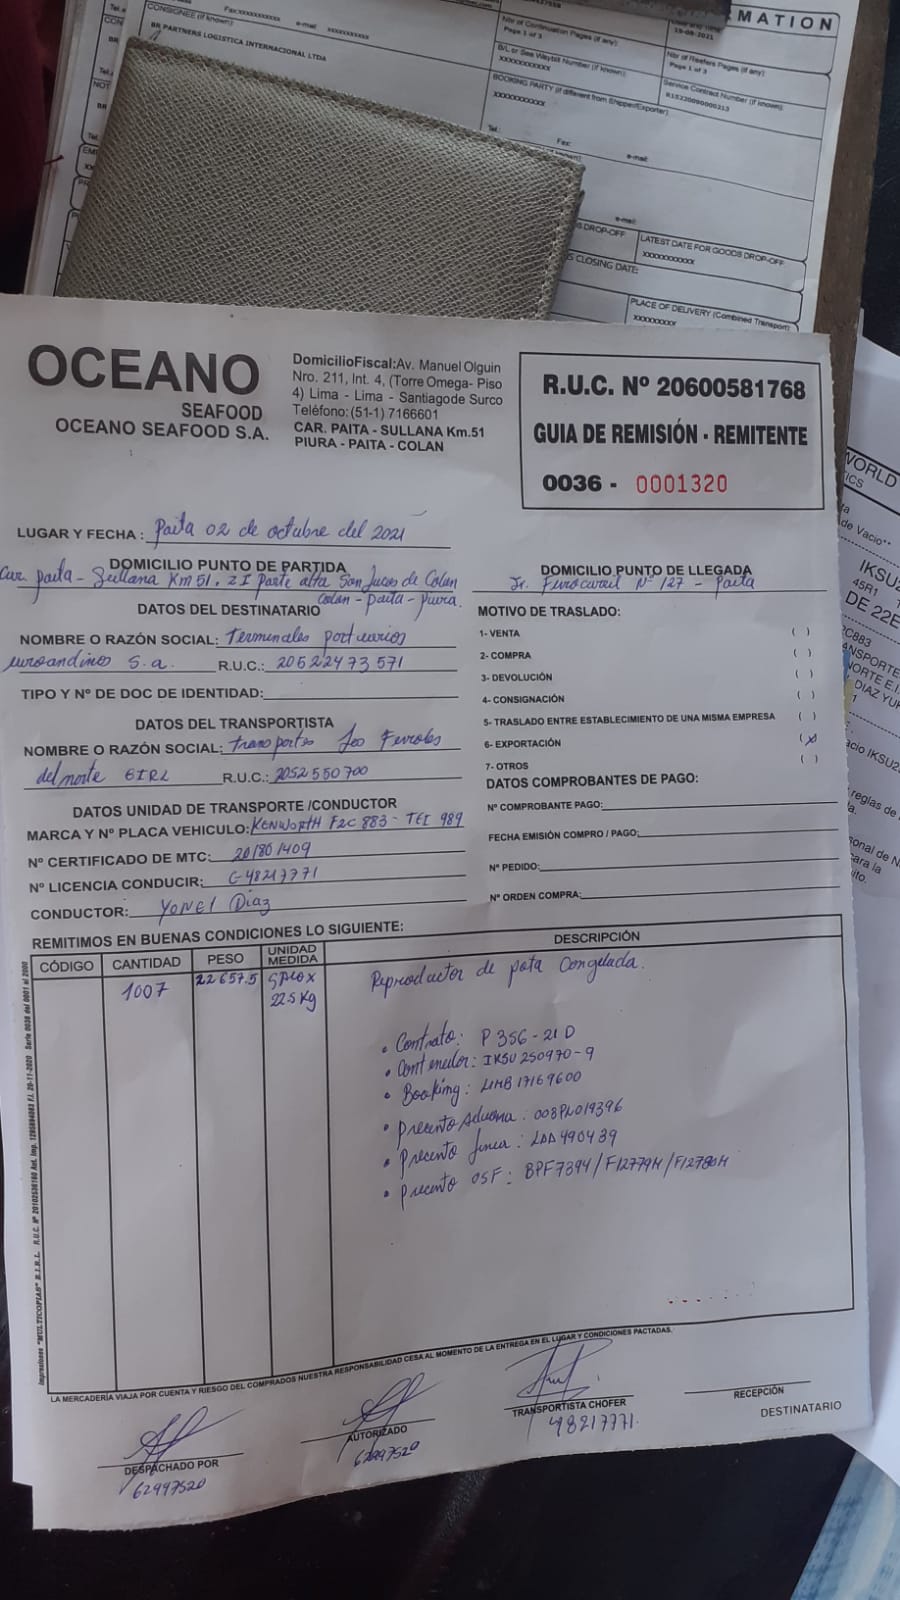 MATION
CONSIGNEE (if known)
Fax:xxxxxxxxxxx
e-mail xxxxxxxxxxx
BR PARTNERS LOGISTICA INTERNACIONAL LTDA
Nbr of Continuation Pages (if any):
Page 1 of 3
19-08-2021
B/L or Sea Waybill Number (if known)
XXXXXXXXXXX
Nbr of Reefers Pages (if any):
Page 1 of 3
BOOKING PARTY (if different from Shipper/Exporter)
XXXXXXXXXXX
Service Contract Number (if known):
R15220090000213
Tel.:
Fax:
e-mail:
e-mail:
DROP-OFF
LATEST DATE FOR GOODS DROP-OFF
XXXXXXXXXXX
CLOSING DATE:
PLACE OF DELIVERY (Combined Transport)
XXXXXXXXXX
OCEANO
SEAFOOD
OCEANO SEAFOOD S.A.
DomicilioFiscal:Av. Manuel Olguin
Nro. 211, Int. 4, (Torre Omega- Piso
4) Lima - Lima - Santiagode Surco
Teléfono:(51-1) 7166601
CAR. PAITA - SULLANA Km.51
PIURA - PAITA - COLAN
R.U.C. Nº 20600581768
GUIA DE REMISIÓN - REMITENTE
0036 - 0001320
LUGAR Y FECHA : Paita 02 de octubre del 2021
DOMICILIO PUNTO DE PARTIDA
Car. paita - Sullana Km 51. ZI Parte alta San Lucas de Colan
Colan - paita - piura.
DOMICILIO PUNTO DE LLEGADA
Jr. Ferrocarril Nº 127 - Paita
DATOS DEL DESTINATARIO
NOMBRE O RAZÓN SOCIAL: Terminales portuarios
euroandinos S.a. R.U.C.: 20522473571
TIPO Y Nº DE DOC DE IDENTIDAD:
MOTIVO DE TRASLADO:
1- VENTA ( )
2- COMPRA ( )
3- DEVOLUCIÓN ( )
4- CONSIGNACIÓN ( )
5- TRASLADO ENTRE ESTABLECIMIENTO DE UNA MISMA EMPRESA ( )
6- EXPORTACIÓN (x)
7- OTROS ( )
DATOS DEL TRANSPORTISTA
NOMBRE O RAZÓN SOCIAL: transportes Leo Ferroles
del norte EIRL R.U.C.: 2052550700
DATOS COMPROBANTES DE PAGO:
Nº COMPROBANTE PAGO:
FECHA EMISIÓN COMPRO / PAGO:
Nº PEDIDO:
Nº ORDEN COMPRA:
DATOS UNIDAD DE TRANSPORTE /CONDUCTOR
MARCA Y Nº PLACA VEHICULO: KENWORTH F2C 883 - TEI 989
Nº CERTIFICADO DE MTC: 201801409
Nº LICENCIA CONDUCIR: C-48217771
CONDUCTOR: YONEL Diaz
REMITIMOS EN BUENAS CONDICIONES LO SIGUIENTE:
CÓDIGO CANTIDAD PESO UNIDAD MEDIDA DESCRIPCIÓN
1007 22657.5 22.5 Kg
Reproductor de pota Congelada.
• Contrato: P 356-21 D
• Contenedor: IKSU 250970-9
• Booking: LMB 17169600
• Precinto Aduana: 008PL019396
• Precinto Linea: LAA490439
• Precinto OSF: BPF7394/F12779H/F12780H
Impresiones "MULTICOPIAS" E.I.R.L.
LA MERCADERÍA VIAJA POR CUENTA Y RIESGO DEL COMPRADOS NUESTRA RESPONSABILIDAD CESA AL MOMENTO DE LA ENTREGA EN EL LUGAR Y CONDICIONES PACTADAS.
DESPACHADO POR
62997520
AUTORIZADO
62997520
TRANSPORTISTA CHOFER
48217771.
RECEPCIÓN
DESTINATARIO
WORLD
de Vacio**
IKSU2
45R1
DE 22E
2C883
ANSPORTE
NORTE E.I.
DIAZ YU
acio IKSU2
reglas de
onal de N
para la